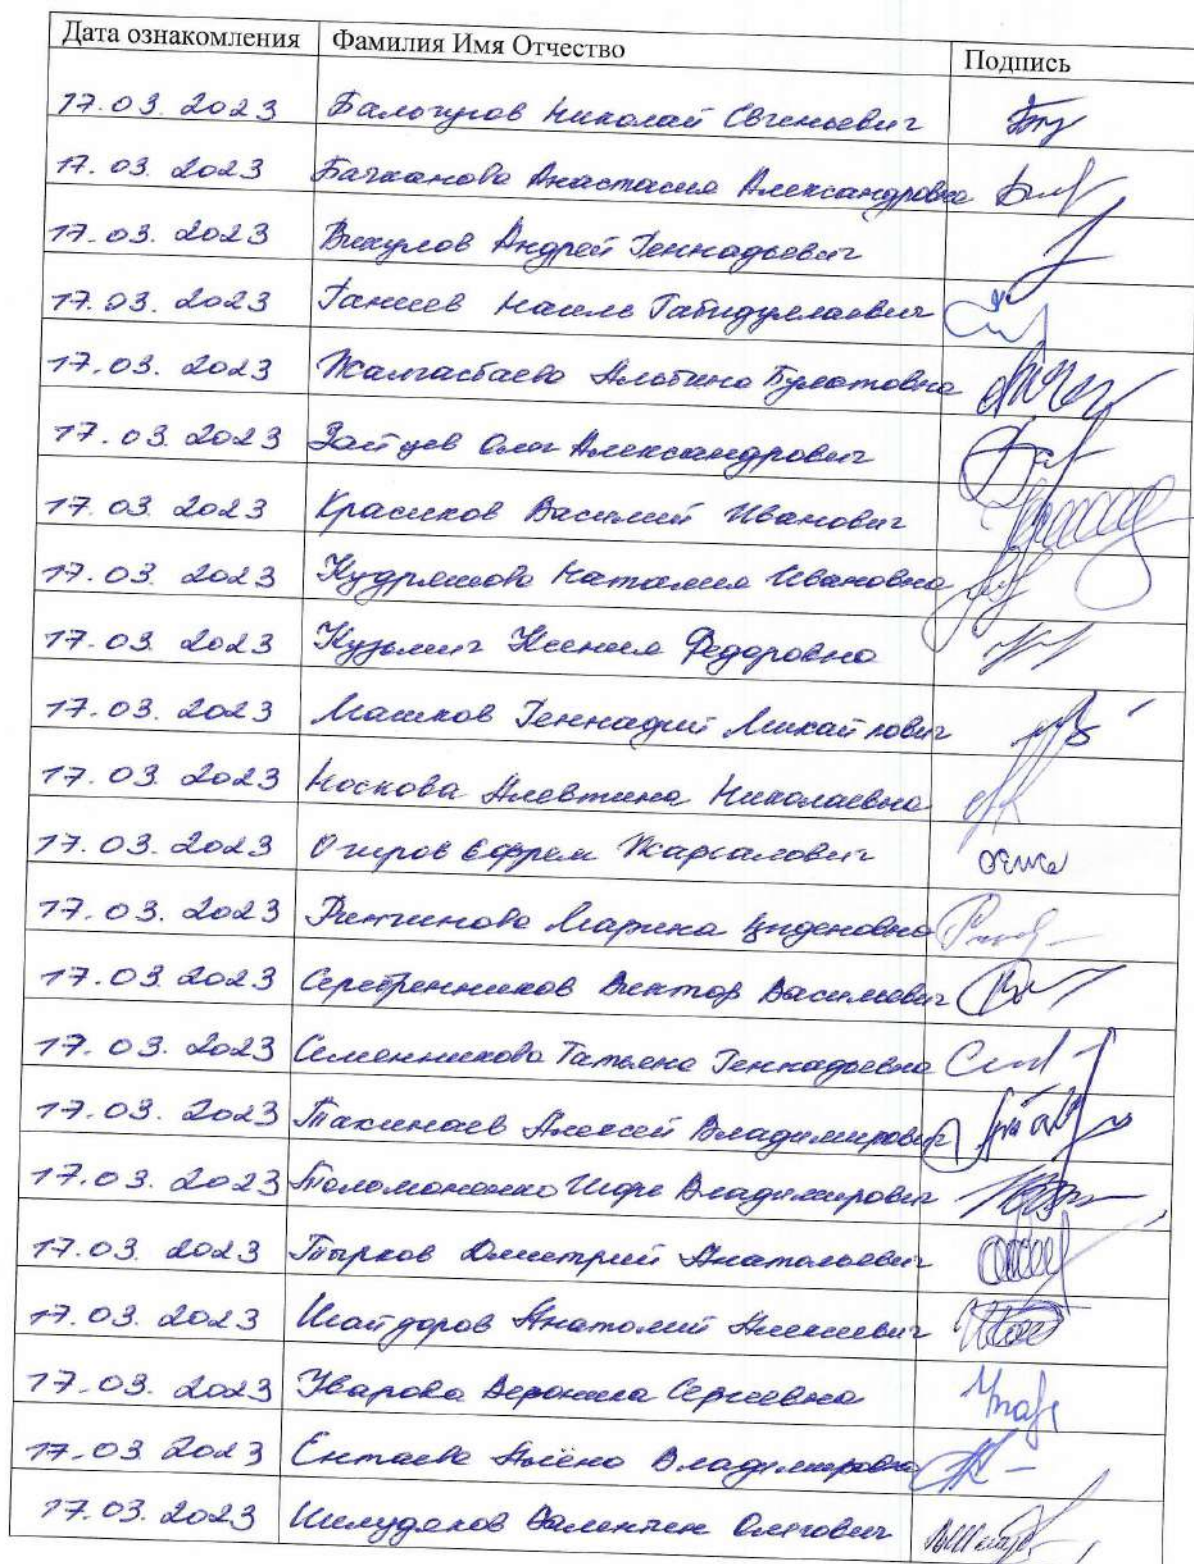 Дата ознакомления Фамилия Имя Отчество Подпись
17.03.2023 Балогуров Николай Евгеньевич
17.03.2023 Бачханова Анастасия Александровна
17.03.2023 Викулов Андрей Геннадьевич
17.03.2023 Ганиев Наиль Габидуллаевич
17.03.2023 Жалгасбаева Альбина Булатовна
17.03.2023 Зайцев Олег Александрович
17.03.2023 Красиков Василий Иванович
17.03.2023 Кудряшова Наталия Ивановна
17.03.2023 Кузьмич Ксения Федоровна
17.03.2023 Машков Геннадий Михайлович
17.03.2023 Носкова Алевтина Николаевна
17.03.2023 Очиров Ефрем Жаргалович
17.03.2023 Ринчинова Марина Цыденовна
17.03.2023 Серебренников Виктор Васильевич
17.03.2023 Семенникова Татьяна Геннадьевна
17.03.2023 Такинаев Алексей Владимирович
17.03.2023 Толомоненко Игорь Владимирович
17.03.2023 Тырков Дмитрий Анатольевич
17.03.2023 Шайдоров Анатолий Алексеевич
17.03.2023 Уварова Вероника Сергеевна
17.03.2023 Ентаева Алёна Владимировна
17.03.2023 Валентин Олегович